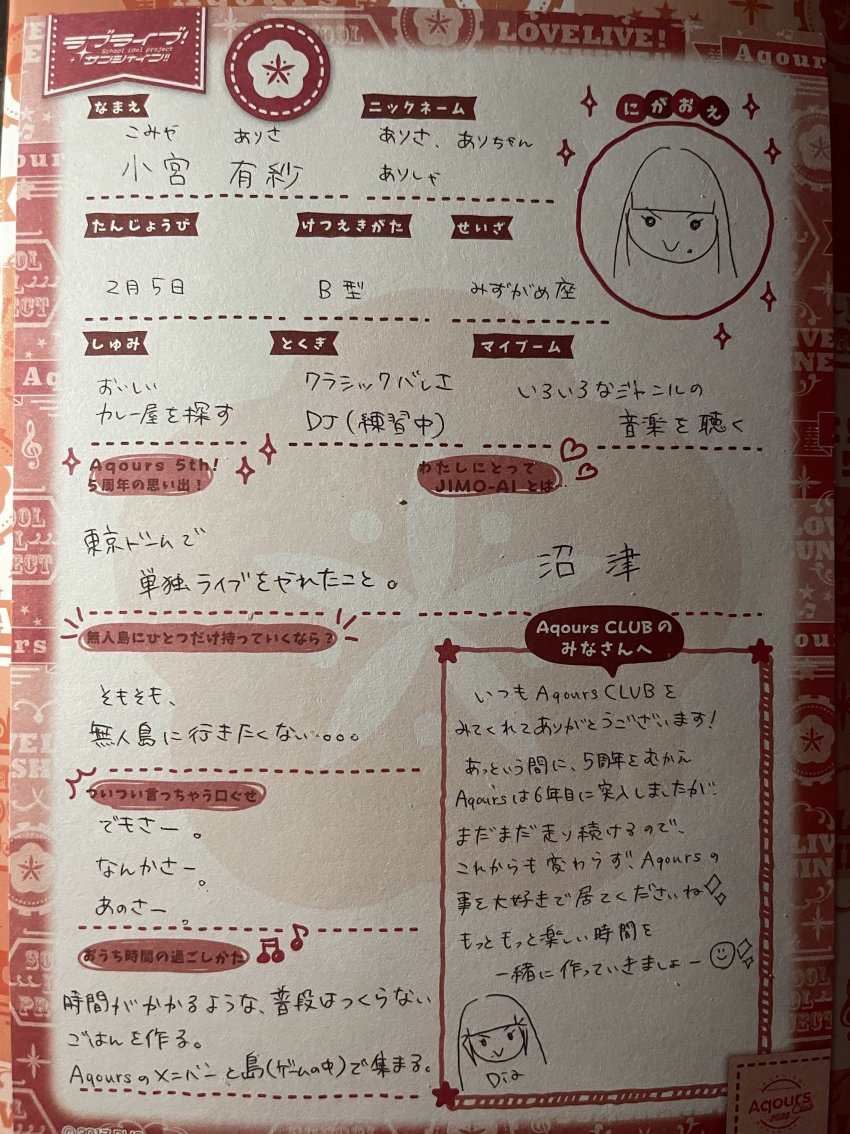 ラブライブ!
School idol project
サンシャイン!!
LOVELIVE!
Aqours
なまえ
こみや ありさ
小宮 有紗
ニックネーム
ありさ、ありちゃん
ありしゃ
にがおえ
たんじょうび
2月5日
けつえきがた
B型
せいざ
みずがめ座
しゅみ
おいしい
カレー屋を探す
とくぎ
クラシックバレエ
DJ(練習中)
マイブーム
いろいろなジャンルの
音楽を聴く
Aqours 5th!
5周年の思い出!
東京ドームで
単独ライブをやれたこと。
わたしにとって
JIMO-AIとは…
沼津
無人島にひとつだけ持っていくなら?
そもそも、
無人島に行きたくない。。。
ついつい言っちゃう口ぐせ
でもさー。
なんかさー。
あのさー。
おうち時間の過ごしかた
時間がかかるような、普段はつくらない
ごはんを作る。
Aqoursのメンバーと島(ゲームの中)で集まる。
Aqours CLUBの
みなさんへ
いつもAqours CLUBを
みてくれてありがとうございます!
あっという間に、5周年をむかえ
Aqoursは6年目に突入しましたが、
まだまだ走り続けるので、
これからも変わらず、Aqoursの
事を大好きで居てくださいね
もっともっと楽しい時間を
一緒に作っていきましょー
Dia
Aqours
2020 Club